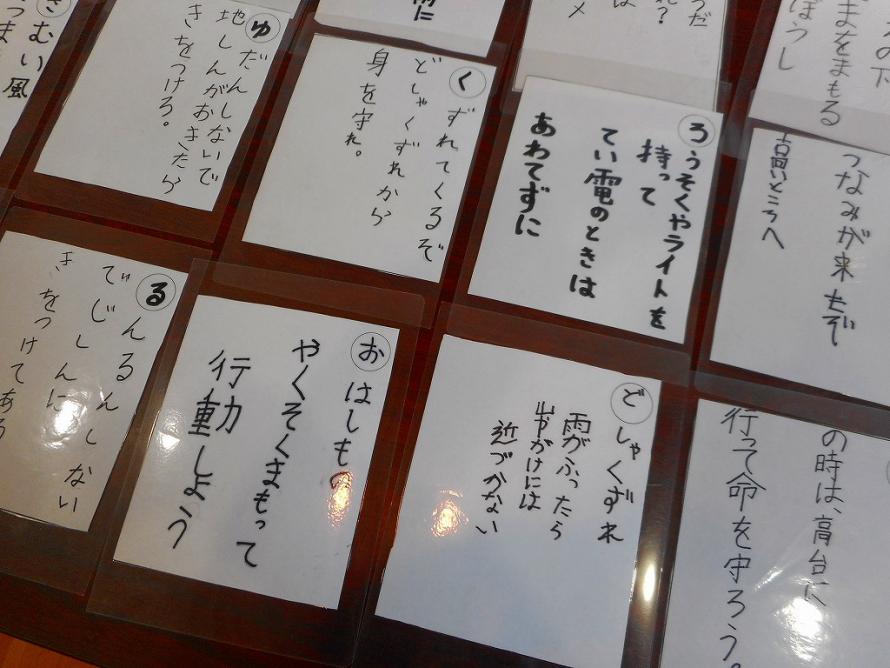 さむい風
ゆだんしないで
地しんがおきたら
きをつけろ。
くずれてくるぞ
どしゃくずれから
身を守れ。
ろうそくやライトを
持って
てい電のときは
あわてずに
まをまもる
ぼうし
つなみが来るぞ
高いところへ
るんるんしない
でじしんに
きをつけてある
おはしもの
やくそくまもって
行動しよう
どしゃくずれ
雨がふったら
山やがけには
近づかない
の時は、高台に
行って命を守ろう。